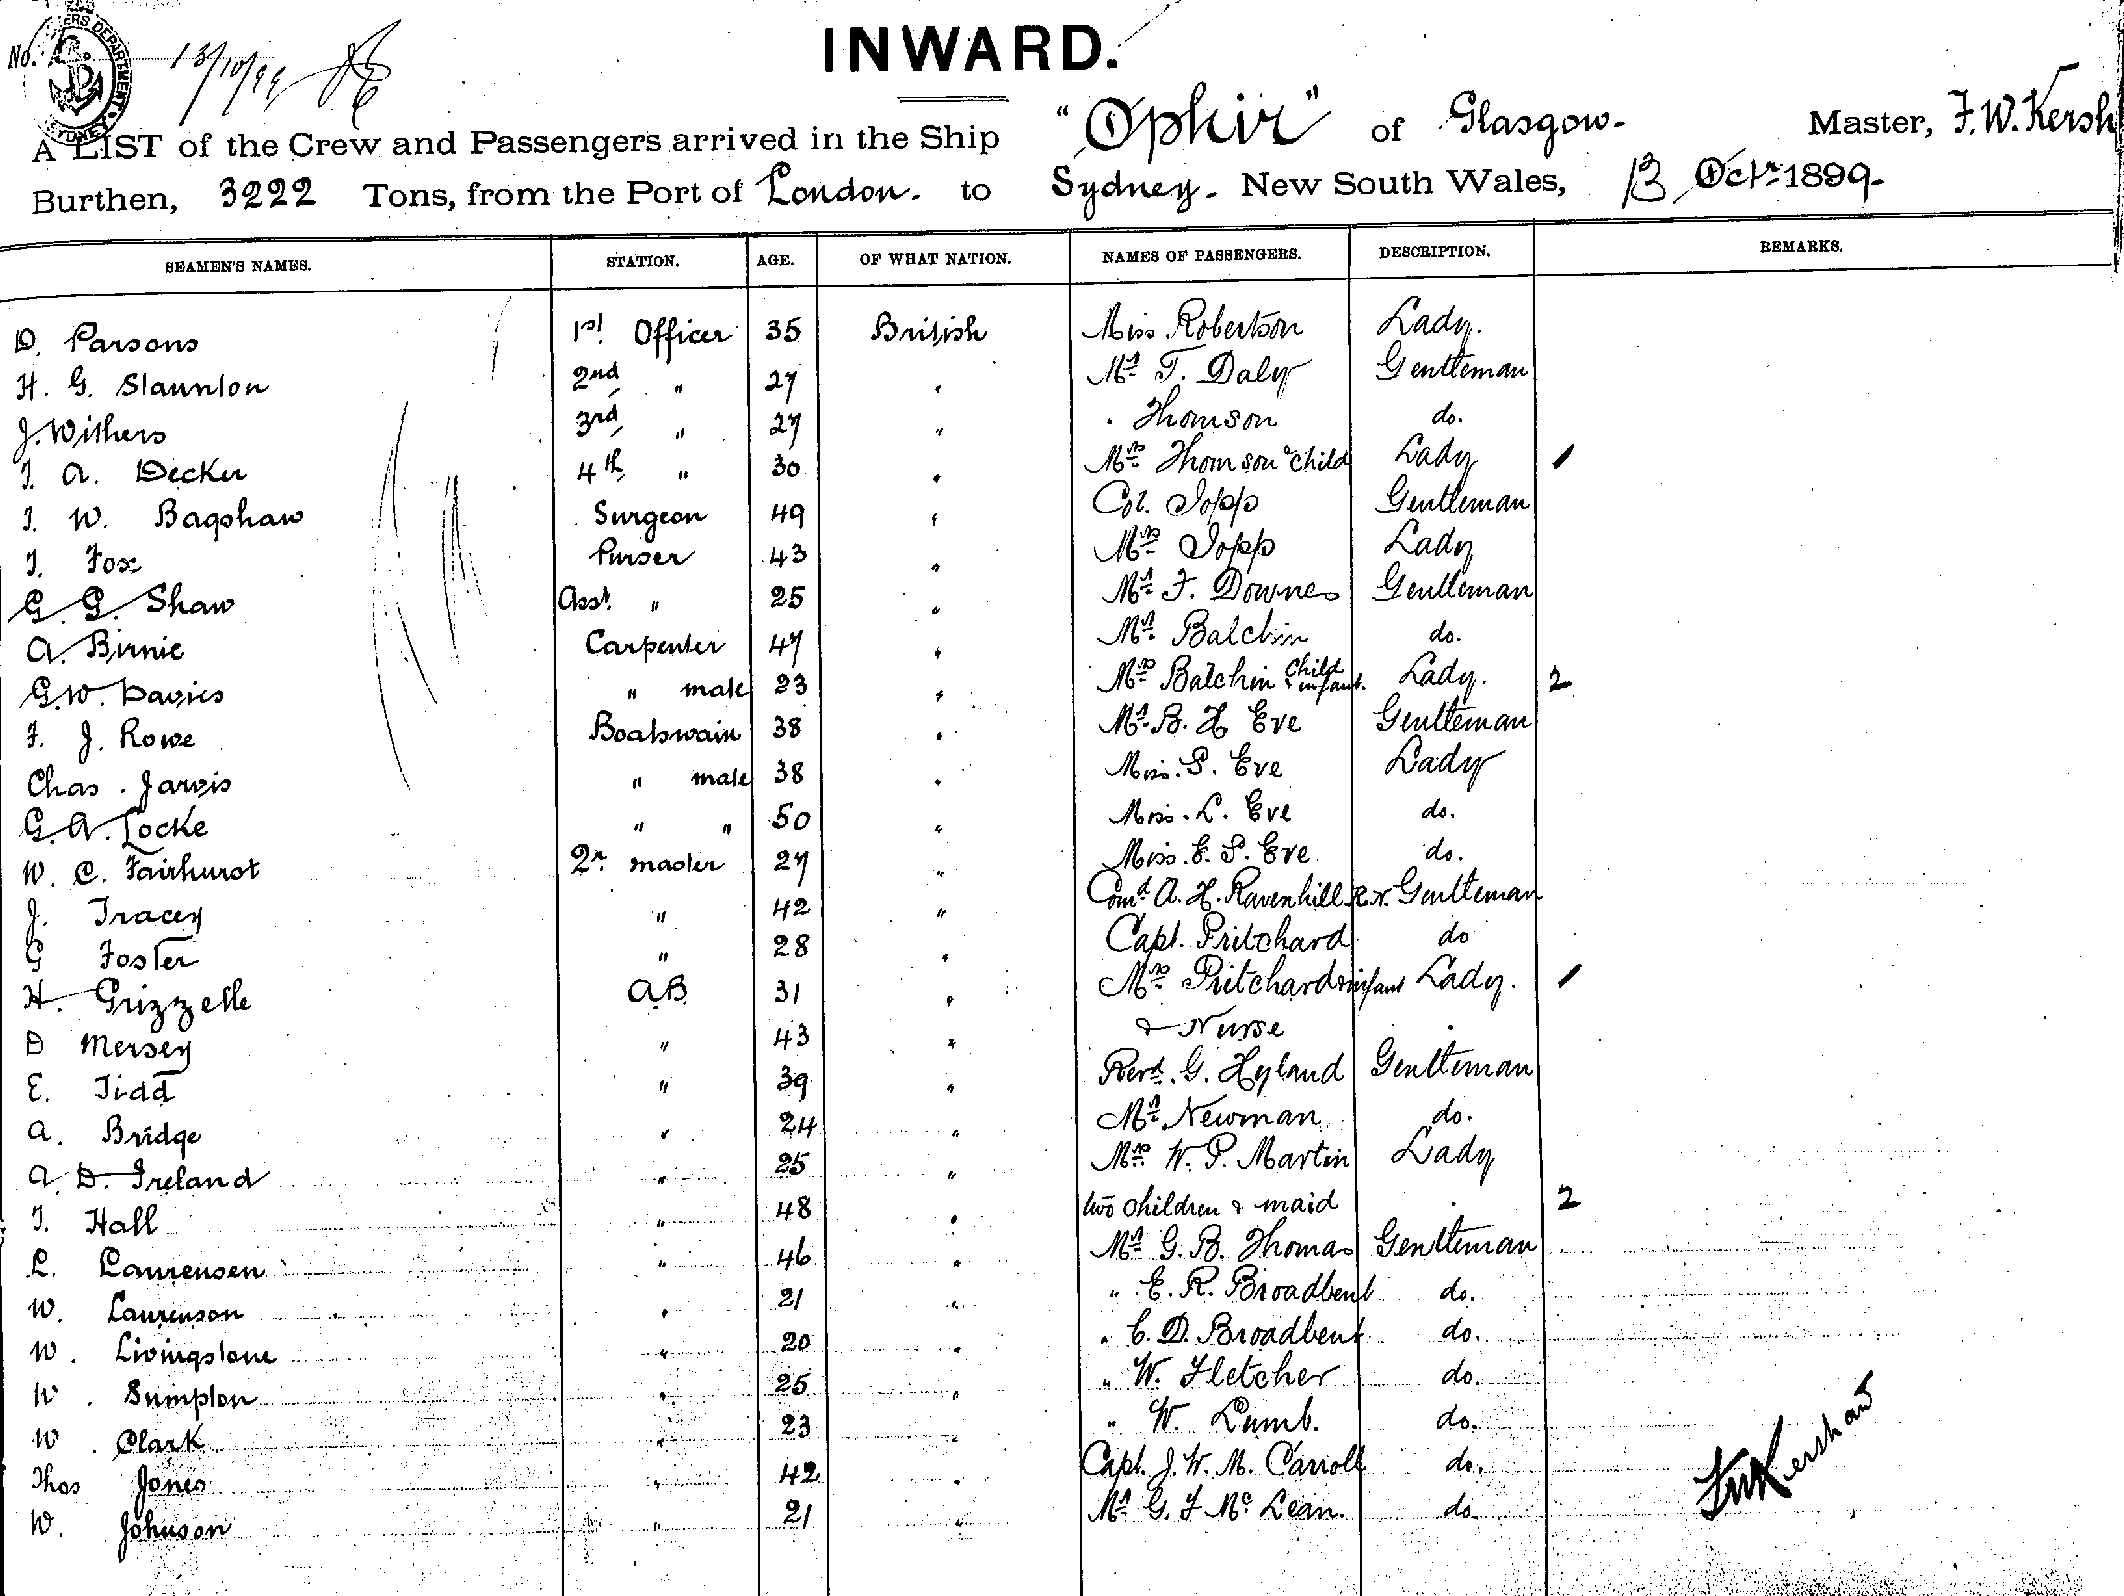 INWARD.
No. 13/10/99
A LIST of the Crew and Passengers arrived in the Ship "Ophir" of Glasgow. Master, F. W. Kersh
Burthen, 3222 Tons, from the Port of London. to Sydney. New South Wales, 13 Octr 1899.
SEAMEN'S NAMES. STATION. AGE. OF WHAT NATION. NAMES OF PASSENGERS. DESCRIPTION. REMARKS.
D. Parsons 1st Officer 35 British Miss Robertson Lady.
H. G. Staunton 2nd " 27 " Mr. T. Daly Gentleman
J. Withers 3rd " 27 " " Thomson do.
T. A. Decker 4th " 30 " Mrs Thomson & Child Lady 1
T. W. Bagshaw Surgeon 49 " Col. Jopp Gentleman
T. Fox Purser 43 " Mrs Jopp Lady
G. G. Shaw Asst. " 25 " Mr. F. Downes Gentleman
A. Birnie Carpenter 47 " Mr. Balchin do.
G. W. Davies " mate 23 " Mrs Balchin Child & infant. Lady. 2
F. J. Rowe Boatswain 38 " Mr. B. H Eve Gentleman
Chas. Jarvis " mate 38 " Miss. P. Eve Lady
G. A. Locke " " 50 " Miss. L. Eve do.
W. C. Fairhurst Qr. master 27 " Miss. E. P. Eve do.
J. Tracey " 42 " Comd A. H. Ravenhill R.N. Gentleman
G Foster " 28 " Capt. Pritchard do
H. Grizzelle AB 31 " Mrs Pritchard & infant Lady. 1
D Mersey " 43 " & Nurse
E. Tidd " 39 " Revd. G. Hyland Gentleman
A. Bridge " 24 " Mr Newman do.
A. D. Ireland " 25 " Mrs W. P. Martin Lady
T. Hall " 48 " two children & maid 2
L. Laurensen " 46 " Mr G. B. Thomas Gentleman
W. Laurenson " 21 " " E. R. Broadbent do.
W. Livingstone " 20 " " C. D. Broadbent do.
W. Sumpton " 25 " " W. Fletcher do.
W. Clark " 23 " " W. Lumb. do.
Thos Jones " 42 " Capt. J. W. M. Carroll do.
W. Johnson " 21 " Mr G. F Mc Lean. do.
F W Kershaw